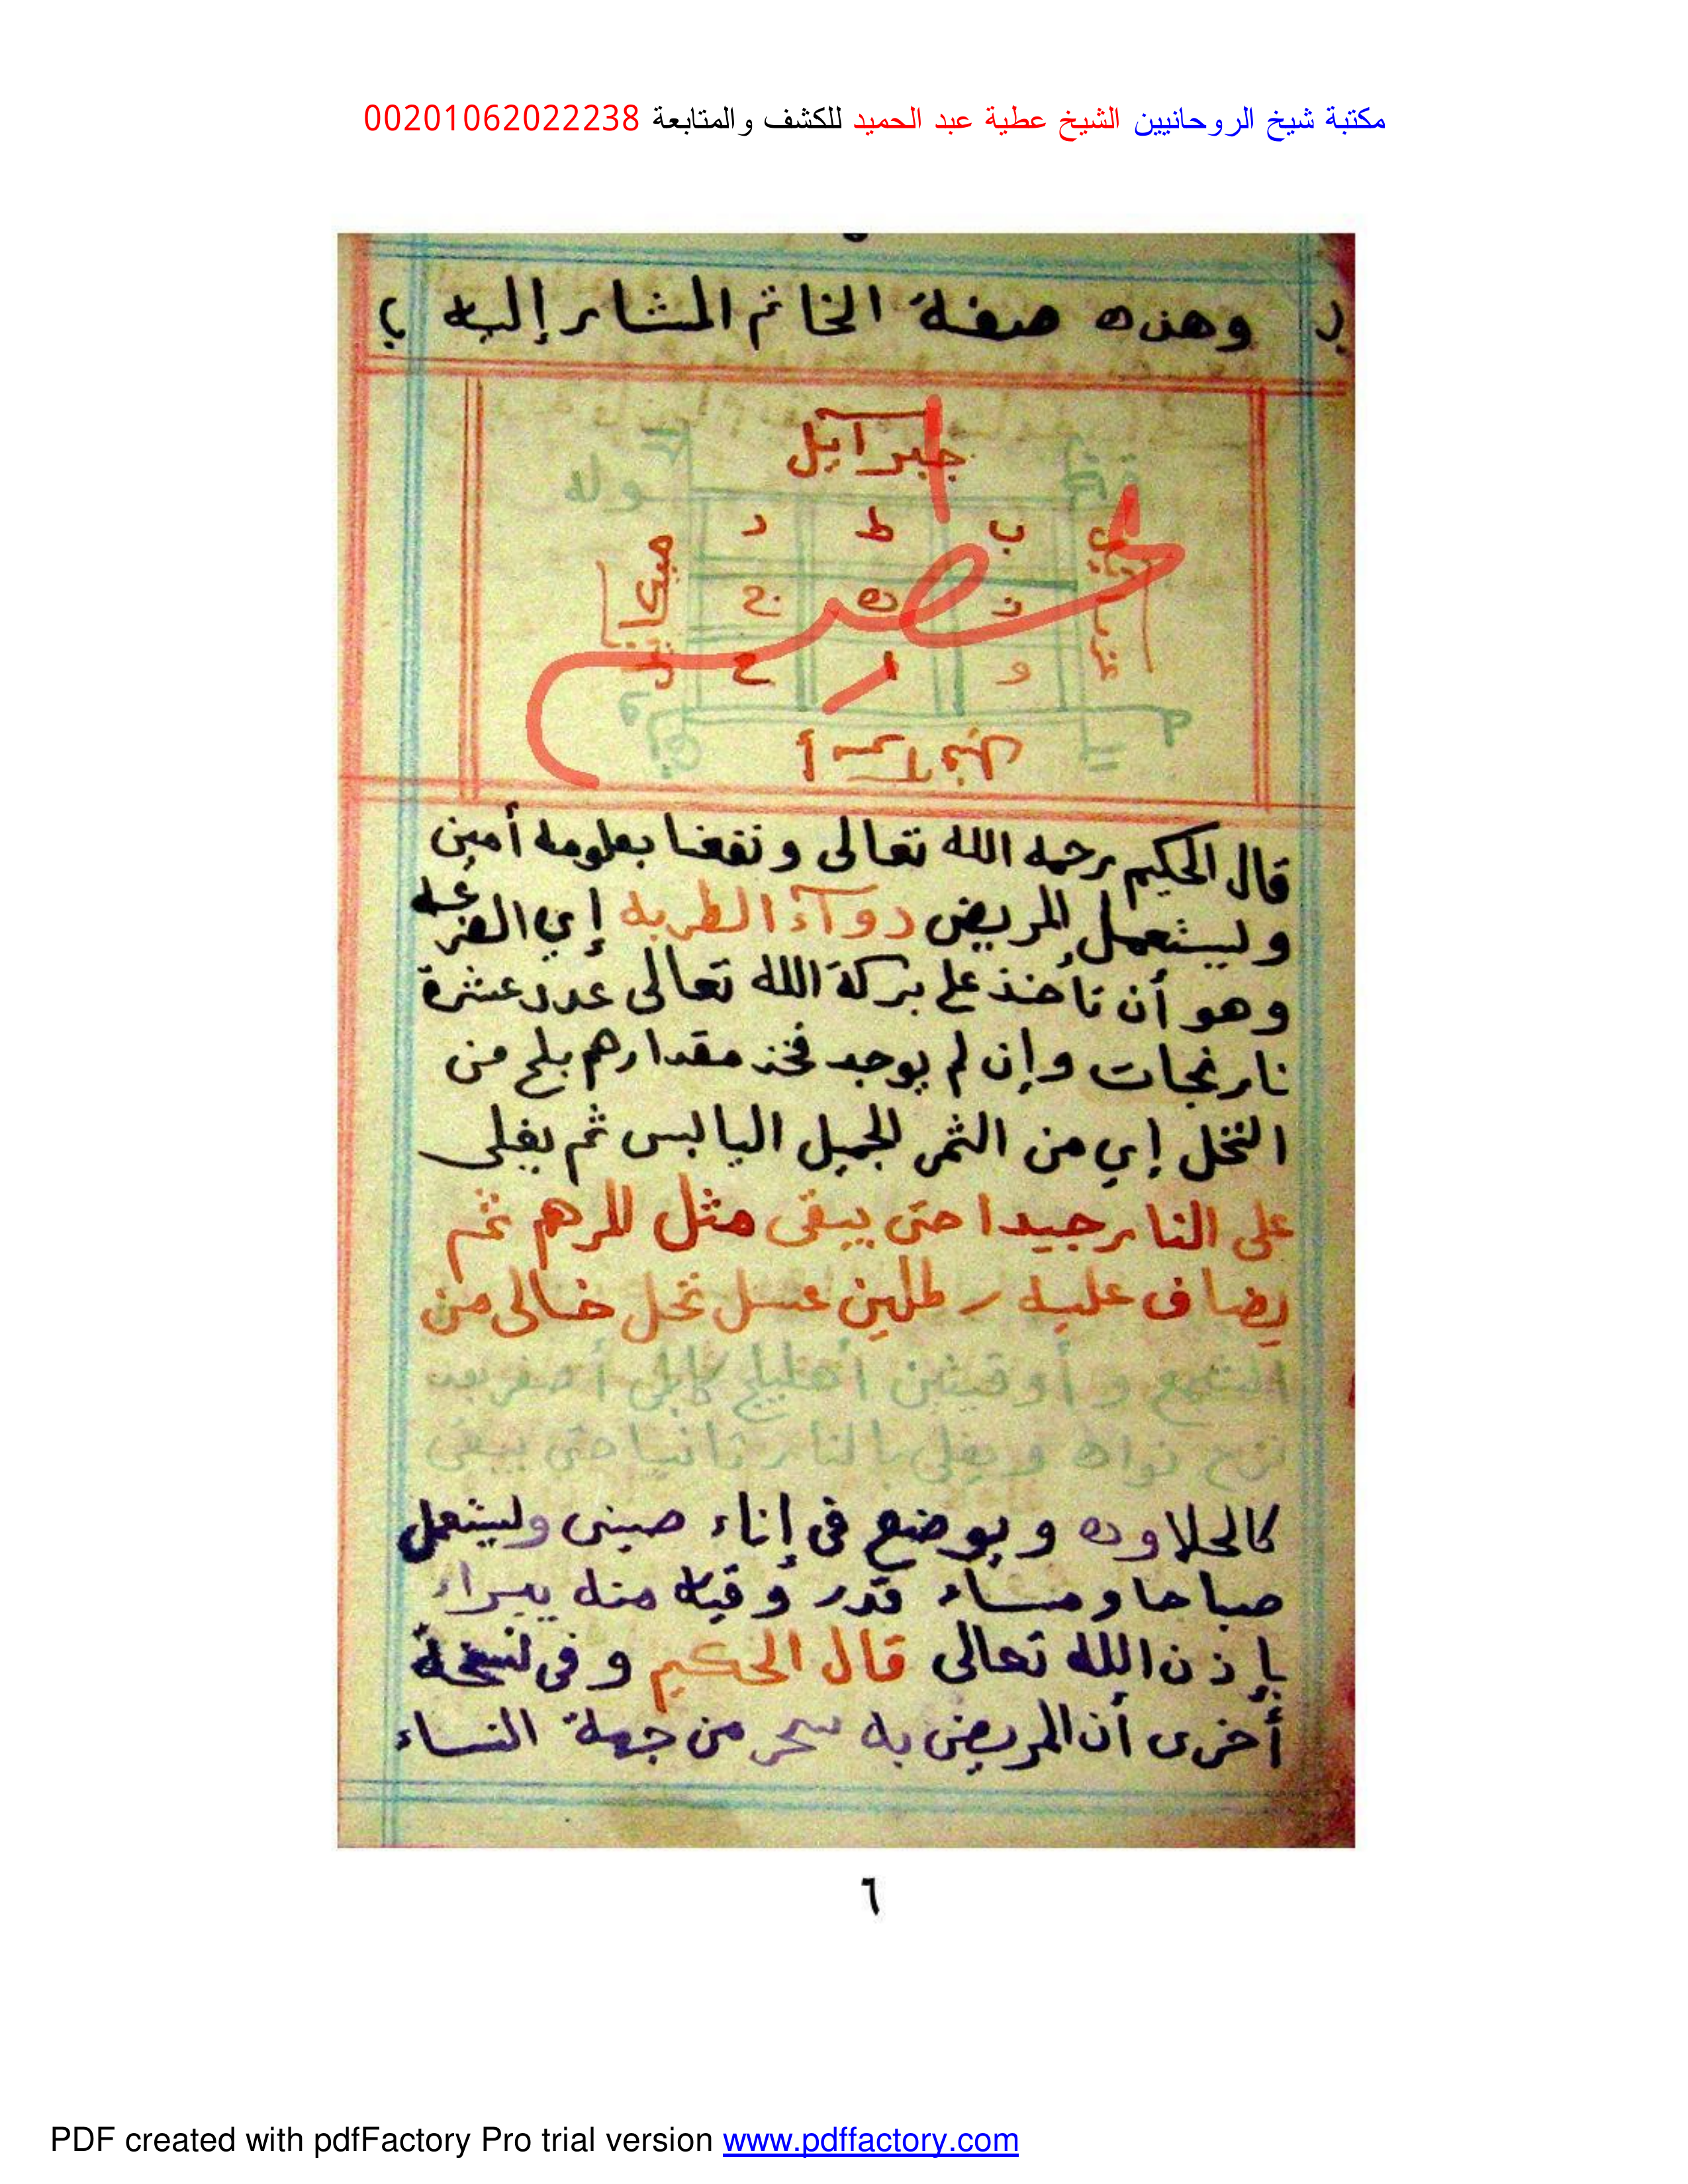 مكتبة شيخ الروحانيين الشيخ عطية عبد الحميد للكشف والمتابعة 00201062022238
( وهذه صفة الخاتم المشار إليه )
جبرائيل
وله
د ط ب
ميكائيل
عزرائيل
ج ه ز
ح ا و
قال الحكيم رحمه الله تعالى ونفعنا بعلومه أمين
وليستعمل المريض دوآء الطربه إي الفزعه
وهو أن تأخذ على بركة الله تعالى عدد عشرة
نارنجات وإن لم يوجد فخذ مقدارهم بلح من
النخل إي من الثمر الجميل اليابس ثم يغلى
على النار جيدا حتى يبقى مثل المرهم ثم
يضاف عليه رطلين عسل نحل خالى من
الشمع و أوقيتين أهليلج كابلى أصفر بعد
نزع نواه ويغلى بالنار ثانيا حتى يبقى
كالحلاوه و يوضع فى إناء صينى وليستعمل
صباحا ومساء قدر وقيه منه يبراء
بإذن الله تعالى قال الحكيم وفى نسخة
أخرى أن المريض به سحر من جهة النساء
٦
PDF created with pdfFactory Pro trial version www.pdffactory.com